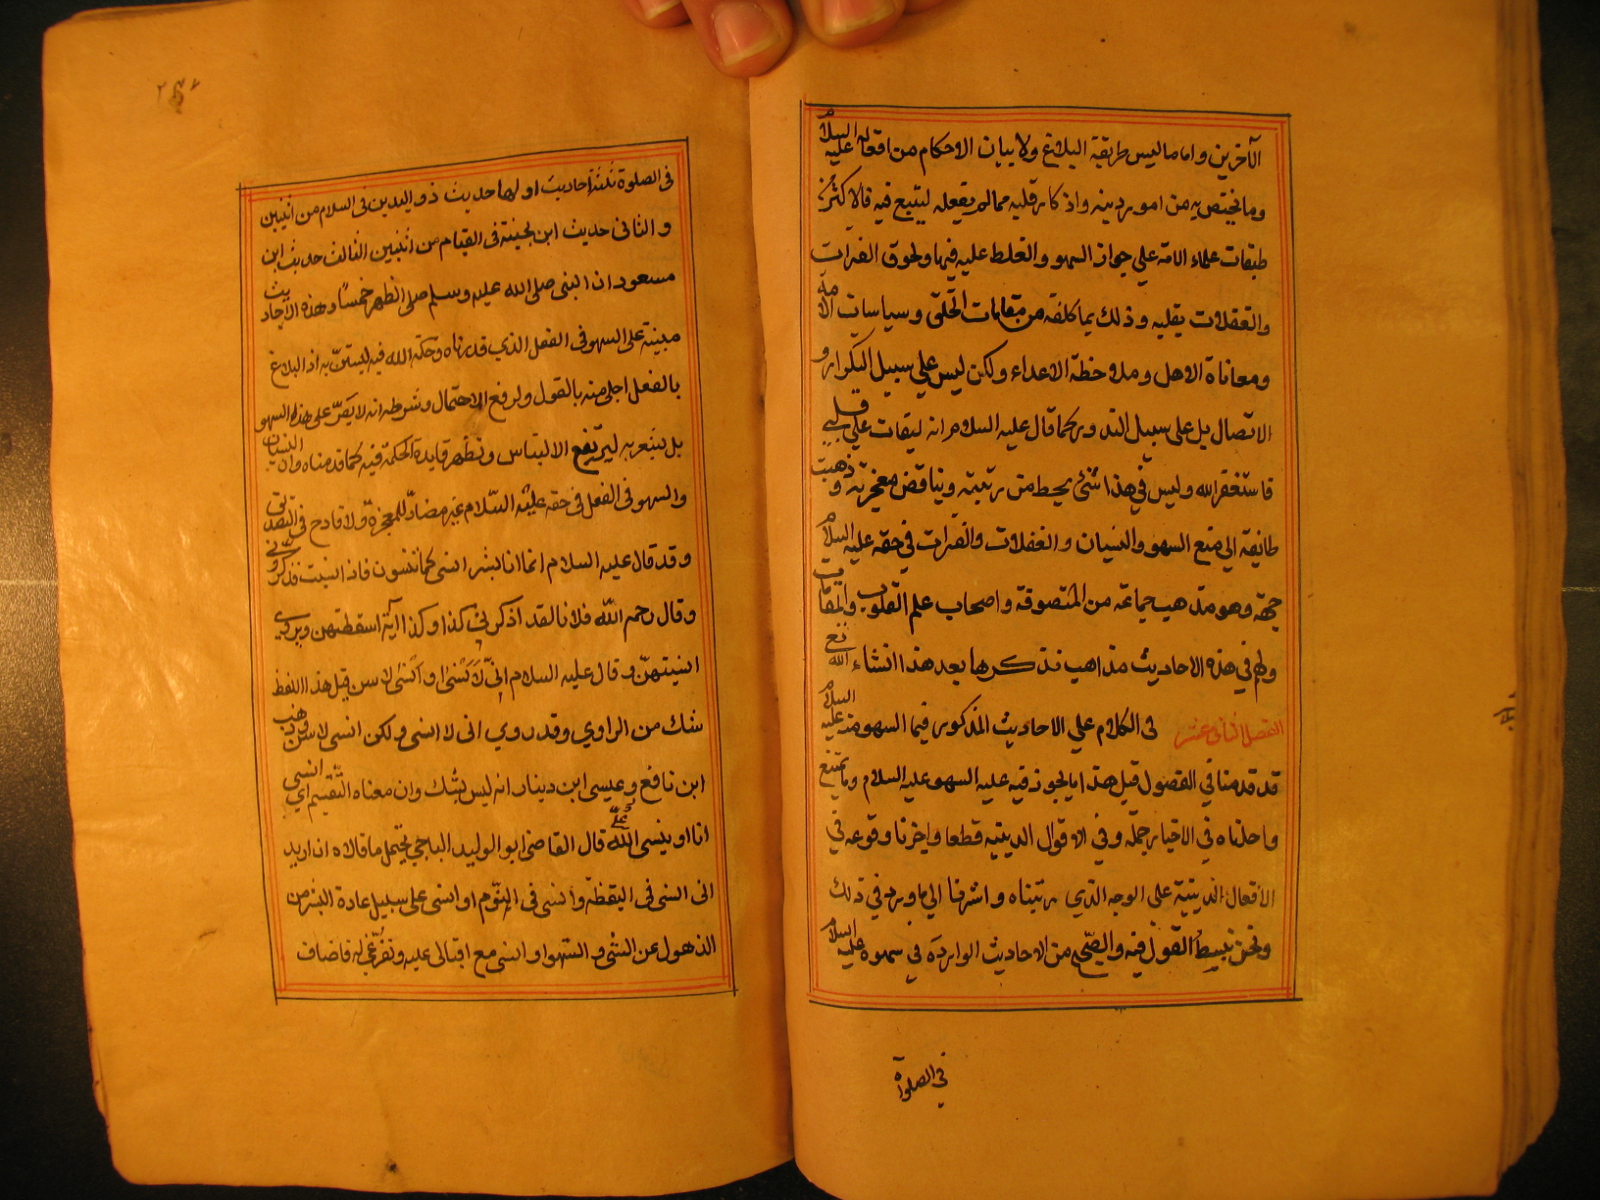 الآخرين واما ما ليس طريقية البلاغ ولا بيان الاحكام من افعاله عليه السلام
وما يختص به من امور دينه واذكار قلبه مما لم يفعله ليتبع فيه فالاكثر من
طبقات علماء الامة علي جواز السهو والغلط عليه فيها ولحوق الفترات
والغفلات بقلبه وذلك بما كلفه من مقامات الخلق وسياسات الامة
ومعاناة الاهل وملاحظة الاعداء ولكن ليس علي سبيل التكرار و
الاتصال بل علي سبيل الندور كما قال عليه السلام انه ليغان علي قلبي
فاستغفر الله وليس في هذا شئ يحيط من رتبته ويناقض معجزته و ذهبت
طائفة الي منع السهو والنسيان والغفلات والفترات في حقه عليه السلام
جملة وهو مذهب جماعة من المتصوفة واصحاب علم القلوب والمقامات
ولهم في هذه الاحاديث مذاهب نذكرها بعد هذا انشاء الله تع
الفصل الثانى عشر في الكلام علي الاحاديث المذكور فيها السهو منه عليه السلام
قد قدمنا في الفصول قبل هذا ما يجوز فيه عليه السهو عليه السلام وما يمتنع
واحلناه في الاخبار جملة وفي الاقوال الدينيه قطعا واجزنا وقوعه في
الأفعال الدينية علي الوجه الذي رتبناه واشرنا الي ما ورد في ذلك
ونحن نبسط القول فيه والصحيح من الاحاديث الواردة في سهوه عليه السلام
في الصلوة
في الصلوة ثلثة احاديث اولها حديث ذو اليدين فى السلام من اثنين
والثانى حديث ابن بحينة فى القيام من اثنين الثالث حديث ابن
مسعود ان النبى صلى الله عليه وسلم صلى الظهر خمسًا وهذه الاحاديث
مبينة على السهو فى الفعل الذي قدرناه وحكمة الله فيه ليستن به اذ البلاغ
بالفعل اجلى منه بالقول ولرفع الاحتمال وشرطه انه لا يقر على هذا السهو
بل يشعر به ليرتفع الالتباس وتظهر فايدة الحكمة فيه كما قدمناه وان النسيان
والسهو فى الفعل فى حقه عليه السلام غير مضاد للمعجزة ولا قادح فى التصديق
وقد قال عليه السلام انما انا بشر انسى كما تنسون فاذا نسيت فذكروني
وقال رحم الله فلانا لقد اذكرنى كذا وكذا آية اسقطتهن ويروي
انسيتهن وقال عليه السلام انى لَاَنسى او اُنسى لاسن قيل هذا اللفظ
شك من الراوي وقد روي انى لا انسى ولكن انسى لاسن وذهب
ابن نافع وعيسى ابن دينار انه ليس بشك وان معناه التقسيم اي انسى
انا او ينسى الله قال القاضى ابو الوليد الباجي يحتمل ما قالاه ان اريد
انى انسى فى اليقظة وانسى فى النوم او انسى على سبيل عادة البشر من
الذهول عن الشي والسهو او انسى مع اقبالى عليه وتفرغي له فاضاف